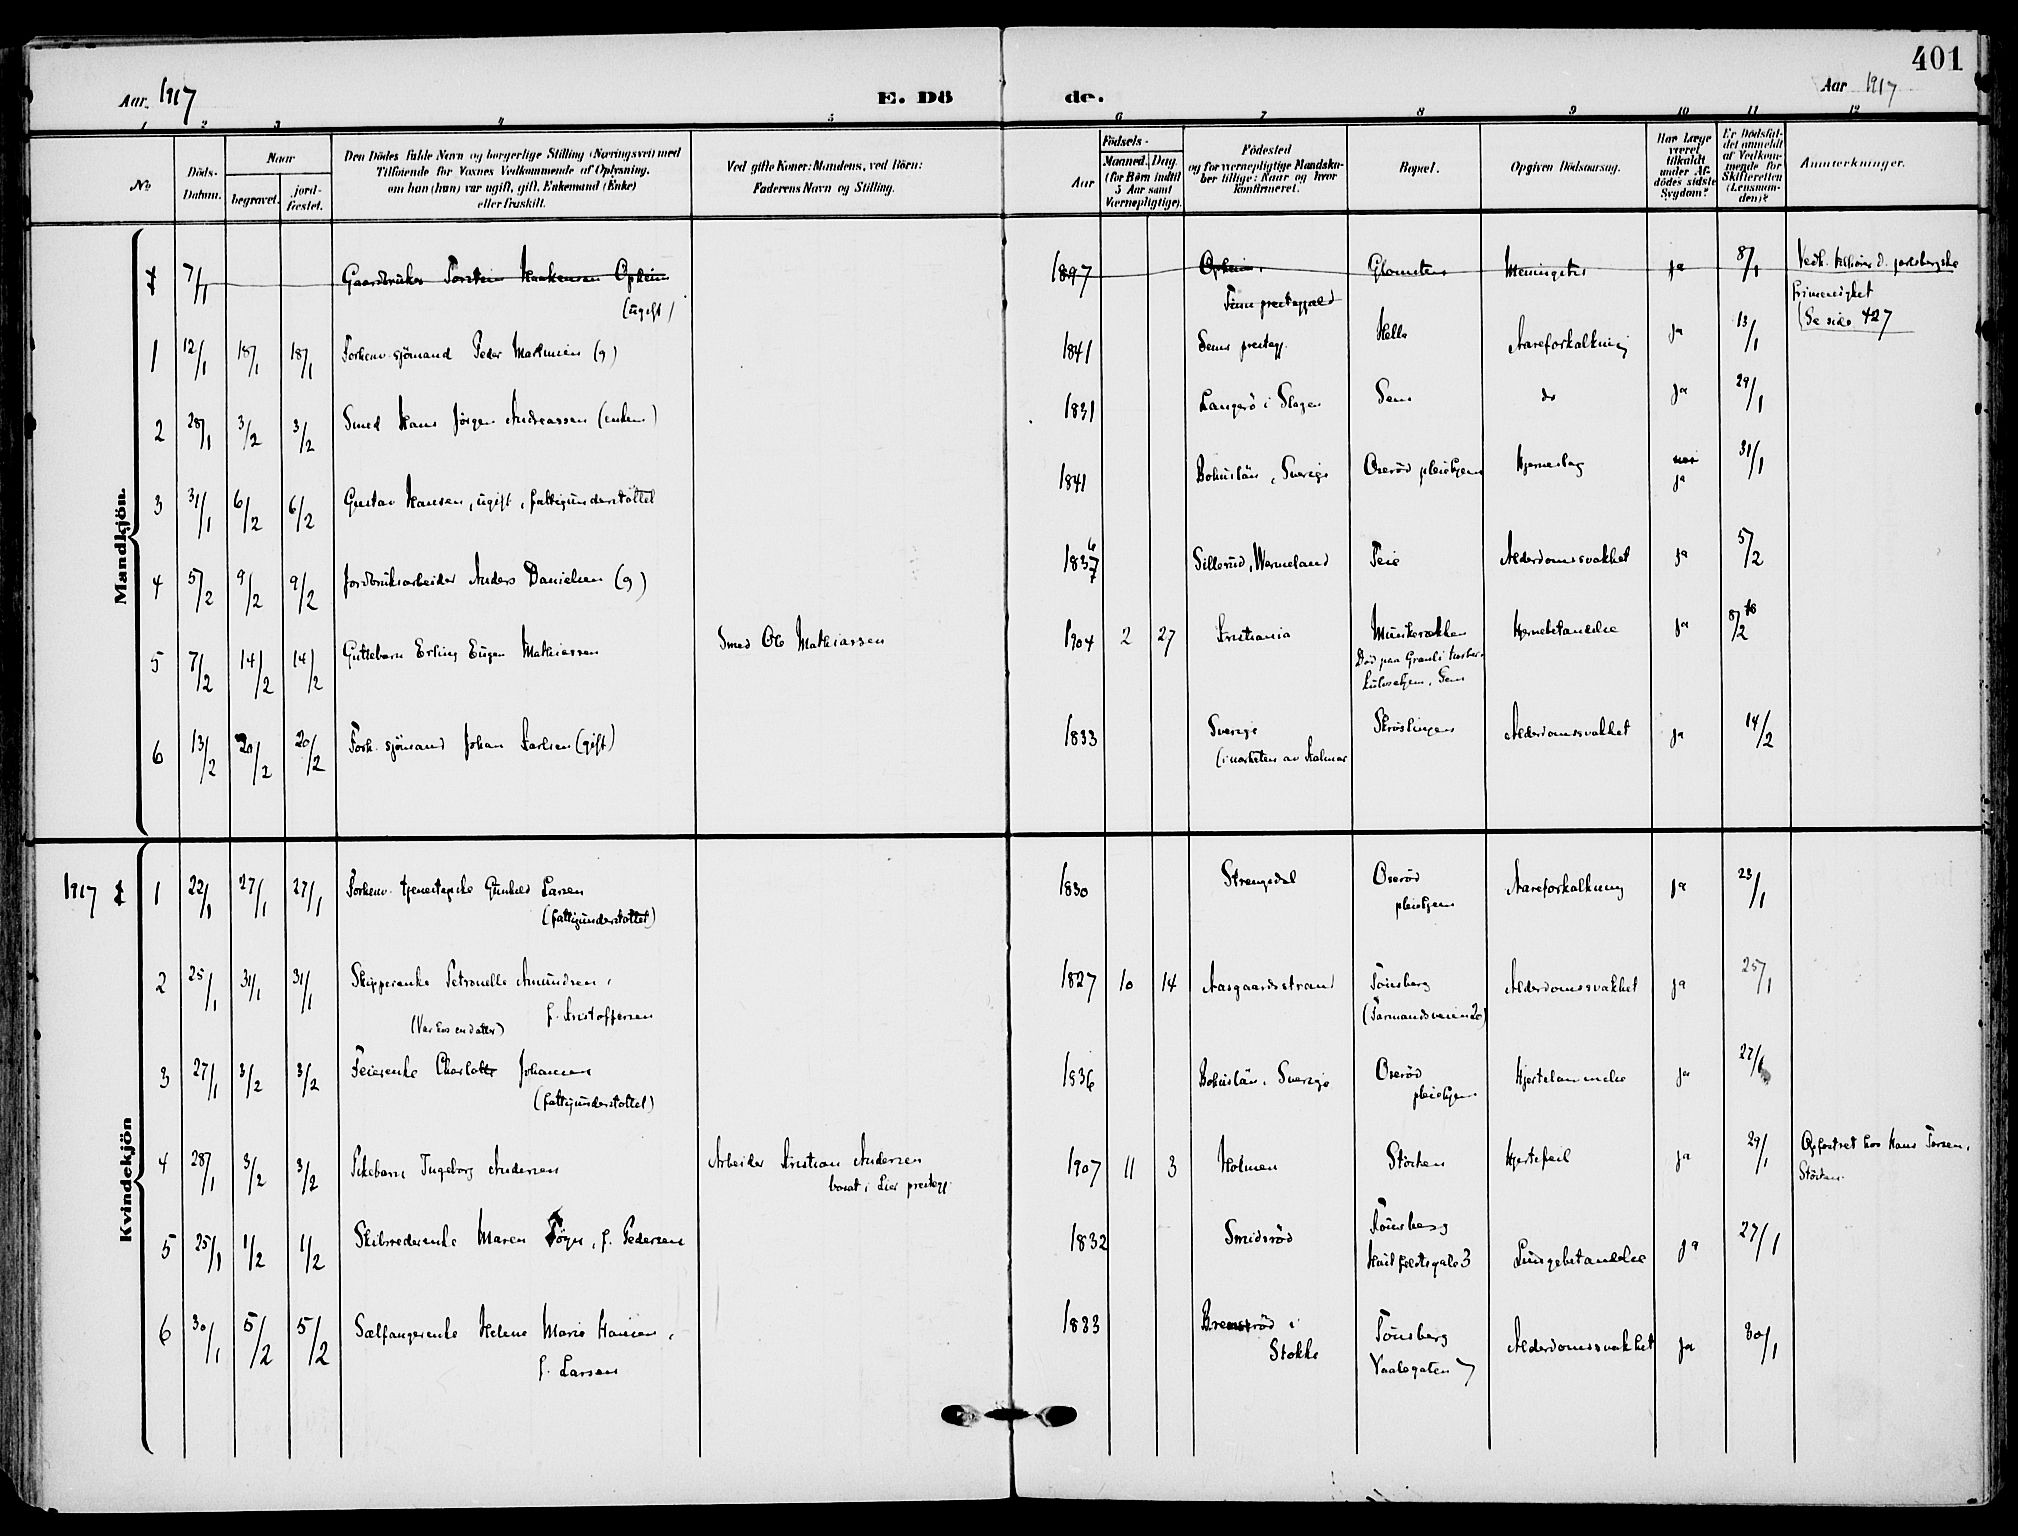 401
Aar 1917 E. Dö de. Aar 1917
1 2 3 4 5 6 7 8 9 10 11 12
No.
Döds-Datum.
Naar
begravet.
jord-fæstet.
Den Dödes fulde Navn og borgerlige Stilling (Næringsvei) med
Tilföiende for Voxnes Vedkommende af Oplysning,
om han (hun) var ugift, gift, Enkemand (Enke)
eller fraskilt.
Ved gifte Koner: Mandens, ved Börn:
Faderens Navn og Stilling.
Födsels-
Aar
Maaned. Dag.
(for Börn indtil
5 Aar samt
Værnepligtige).
Födested
og for værnepligtige Mandska-
ber tillige: Naar og hvor
konfirmeret.
Bopæl.
Opgiven Dödsaarsag.
Har Læge
været
tilkaldt
under Af-
dödes sidste
Sygdom?
Er Dödsfal-
det anmeldt
af Vedkom-
mende for
Skifteretten
(Lensman-
den)?
Anmerkninger.
Mandkjön.
7/1 Gaardbruker Torstein Haakensen Opheim 1897 Opheim, Glomstein Meningitis ja 8/1
(ugift) Tinn prestegjeld
frimenighet
(Se side 427
1 12/1 18/1 18/1 Forhenv. sjömand Peder Martinsen (g) 1841 Sems prestegj. Hella Aareforkalkning ja 13/1
2 28/1 3/2 3/2 Smed Hans Jörgen Andreassen (enkem) 1831 Langerö i Slagen Sem do ja 29/1
3 31/1 6/2 6/2 Gustav Hansen, ugift, fattigunderstöttet 1841 Bohuslän, Sverige Oseröd pleiehjem Hjerneslag nei ja 31/1
4 5/2 9/2 9/2 Jordbruksarbeider Anders Danielsen (g) 1836 Sillerud, Wermeland Teie Alderdomssvakhet ja 5/2
5 7/2 14/2 14/2 Guttebarn Erling Eugen Mathiassen Smed Ole Mathiassen 1904 2 27 Kristiania Munkerækken Hjernebetændelse ja 8/2
Död paa Granli tuber-
kulosehjem, Sem
6 13/2 20/2 20/2 Forh. sjömand Johan Karlsen (gift) 1833 Sverige Skröslingen Alderdomssvakhet ja 14/2
(i nærheten av Kalmar
Kvindekjön
1917 1 22/1 27/1 27/1 Forhenv. tjenestepike Gunhild Larsen 1830 Strengsdal Oseröd Aareforkalkning ja 23/1
(fattigunderstöttet) pleiehjem
2 25/1 31/1 31/1 Skipperenke Petronelle Amundsen, 1827 10 14 Aasgaardsstrand Tönsberg Alderdomssvakhet ja 25/1
f. Kristoffersen (Farmandsveien 20)
(Var hos en datter)
3 27/1 3/2 3/2 Feierenke Charlotte Johansen 1836 Bohuslän, Sverige Oseröd Hjertelammelse ja 27/1
(fattigunderstöttet) pleiehjem
4 28/1 3/2 3/2 Pikebarn Ingeborg Andersen Arbeider Kristian Andersen 1907 11 3 Holmen Störten Hjertefeil ja 29/1 Opfostret hos Hans Torsen,
bosat i Lier prestegj. Störten.
5 25/1 1/2 1/2 Skibsrederenke Maren Föyn, f. Pedersen 1832 Smidsröd Tönsberg Lungebetændelse ja 27/1
Huitfeldtsgate 3
6 30/1 5/2 5/2 Sælfangerenke Helene Marie Hansen, 1833 Bremsröd i Tönsberg Alderdomssvakhet ja 30/1
f. Larsen Stokke Vaalegaten 7